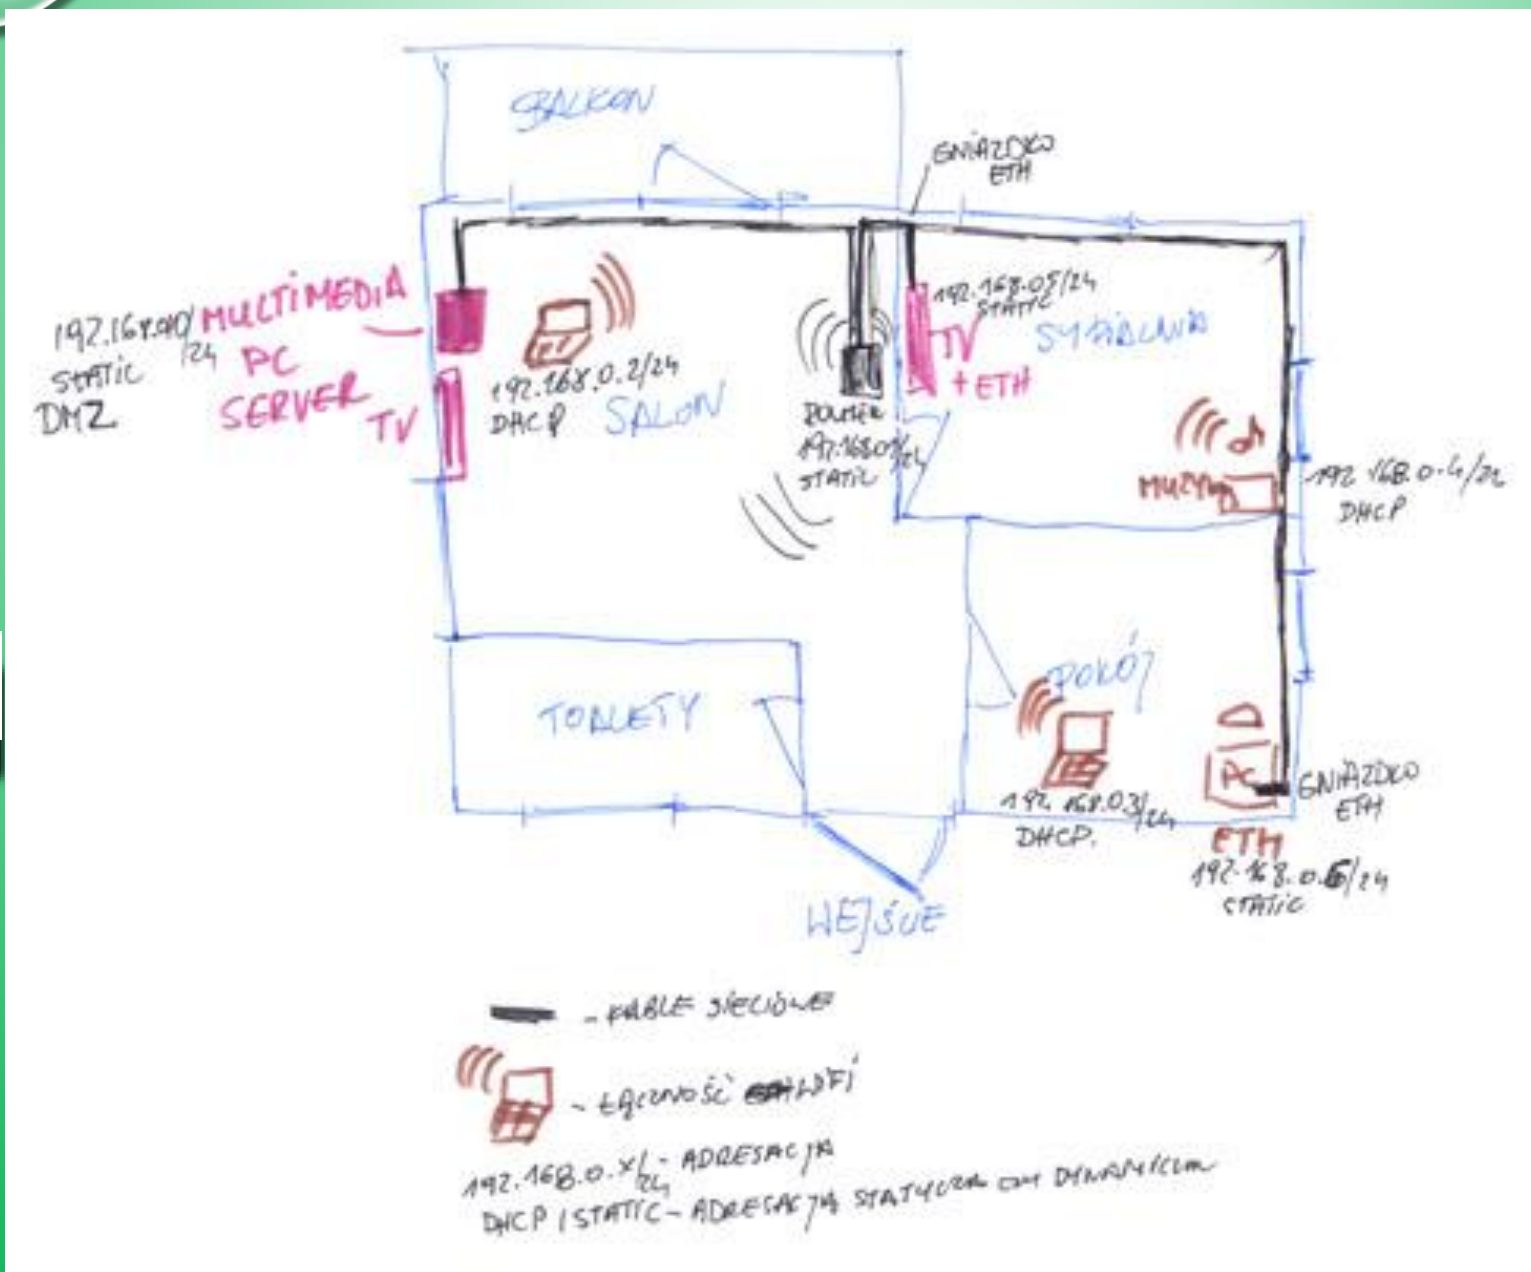 BALKON
GNIAZDKO
ETH
192.168.0.10/24
STATIC
DMZ
MULTIMEDIA
PC
SERVER
TV
192.168.0.2/24
DHCP
SALON
ROUTER
192.168.0.1/24
STATIC
192.168.0.5/24
STATIC
TV
+ ETH
SYPIALNIA
MUZYKA
192.168.0.4/24
DHCP
TOALETY
POKÓJ
192.168.0.3/24
DHCP.
PC
GNIAZDKO
ETH
ETH
192.168.0.6/24
STATIC
WEJŚCIE
- KABLE SIECIOWE
- ŁĄCZNOŚĆ WIFI
192.168.0.x/24 - ADRESACJA
DHCP / STATIC - ADRESACJA STATYCZNA CZY DYNAMICZNA